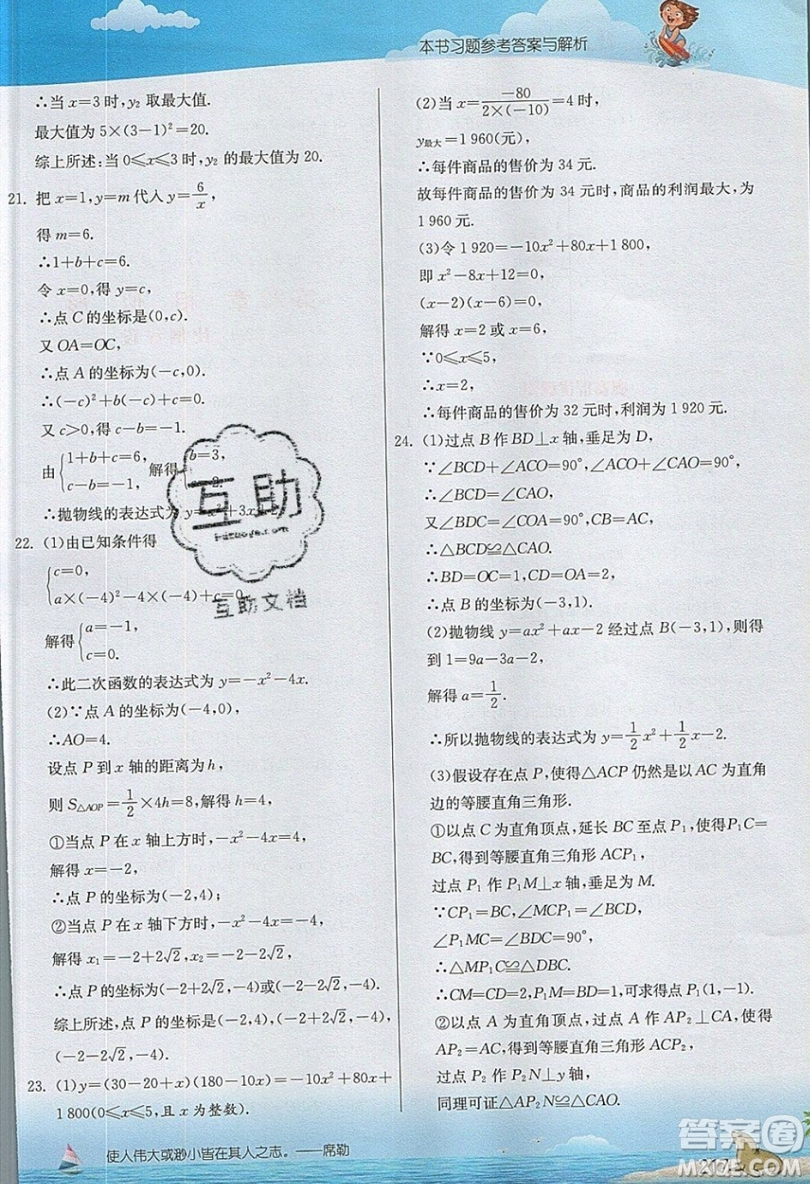 本书习题参考答案与解析
∴当 x=3 时, y₂ 取最大值.
最大值为 5×(3-1)²=20.
综上所述:当 0⩽x⩽3 时, y₂ 的最大值为 20.
21. 把 x=1, y=m 代入 y=6/x,
得 m=6.
∴1+b+c=6.
令 x=0,得 y=c,
∴点 C 的坐标是(0,c).
又 OA=OC,
∴点 A 的坐标为(-c,0).
∴(-c)²+b(-c)+c=0.
又 c>0,得 c-b=-1.
由{1+b+c=6, c-b=-1, 解得{b=3, c=2.
∴抛物线的表达式为 y=x²+3x+2.
22. (1)由已知条件得
{c=0,
a×(-4)²-4×(-4)+c=0,
解得{a=-1,
c=0.
∴此二次函数的表达式为 y=-x²-4x.
(2)∵点 A 的坐标为(-4,0),
∴AO=4.
设点 P 到 x 轴的距离为 h,
则 S△AOP=1/2×4h=8,解得 h=4,
①当点 P 在 x 轴上方时,-x²-4x=4,
解得 x=-2,
∴点 P 的坐标为(-2,4);
②当点 P 在 x 轴下方时,-x²-4x=-4,
解得 x₁=-2+2√2, x₂=-2-2√2,
∴点 P 的坐标为(-2+2√2,-4)或(-2-2√2,-4).
综上所述,点 P 的坐标是(-2,4)或(-2+2√2,-4)或
(-2-2√2,-4).
23. (1)y=(30-20+x)(180-10x)=-10x²+80x+
1 800(0⩽x⩽5,且 x 为整数).
(2)当 x=-80/(2×(-10))=4 时,
y最大=1 960(元),
∴每件商品的售价为 34 元.
故每件商品的售价为 34 元时,商品的利润最大,为
1 960 元.
(3)令 1 920=-10x²+80x+1 800,
即 x²-8x+12=0,
(x-2)(x-6)=0,
解得 x=2 或 x=6,
∵0⩽x⩽5,
∴x=2,
∴每件商品的售价为 32 元时,利润为 1 920 元.
24. (1)过点 B 作 BD⊥x 轴,垂足为 D,
∵∠BCD+∠ACO=90°,∠ACO+∠CAO=90°,
∴∠BCD=∠CAO,
又∵∠BDC=∠COA=90°,CB=AC,
∴△BCD≌△CAO,
∴BD=OC=1,CD=OA=2,
∴点 B 的坐标为(-3,1).
(2)抛物线 y=ax²+ax-2 经过点 B(-3,1),则得
到 1=9a-3a-2,
解得 a=1/2.
∴所以抛物线的表达式为 y=1/2x²+1/2x-2.
(3)假设存在点 P,使得△ACP 仍然是以 AC 为直角
边的等腰直角三角形.
①以点 C 为直角顶点,延长 BC 至点 P₁,使得 P₁C=
BC,得到等腰直角三角形 ACP₁,
过点 P₁ 作 P₁M⊥x 轴,垂足为 M.
∵CP₁=BC,∠MCP₁=∠BCD,
∠P₁MC=∠BDC=90°,
∴△MP₁C≌△DBC.
∴CM=CD=2,∴P₁M=BD=1,可求得点 P₁(1,-1).
②以点 A 为直角顶点,过点 A 作 AP₂⊥CA,且使得
AP₂=AC,得到等腰直角三角形 ACP₂,
过点 P₂ 作 P₂N⊥y 轴,垂足为 N.
同理可证△AP₂N≌△CAO.
互助
hutaoye.com
互助文档
使人伟大或渺小皆在其人之志。——席勒
答案圈
217